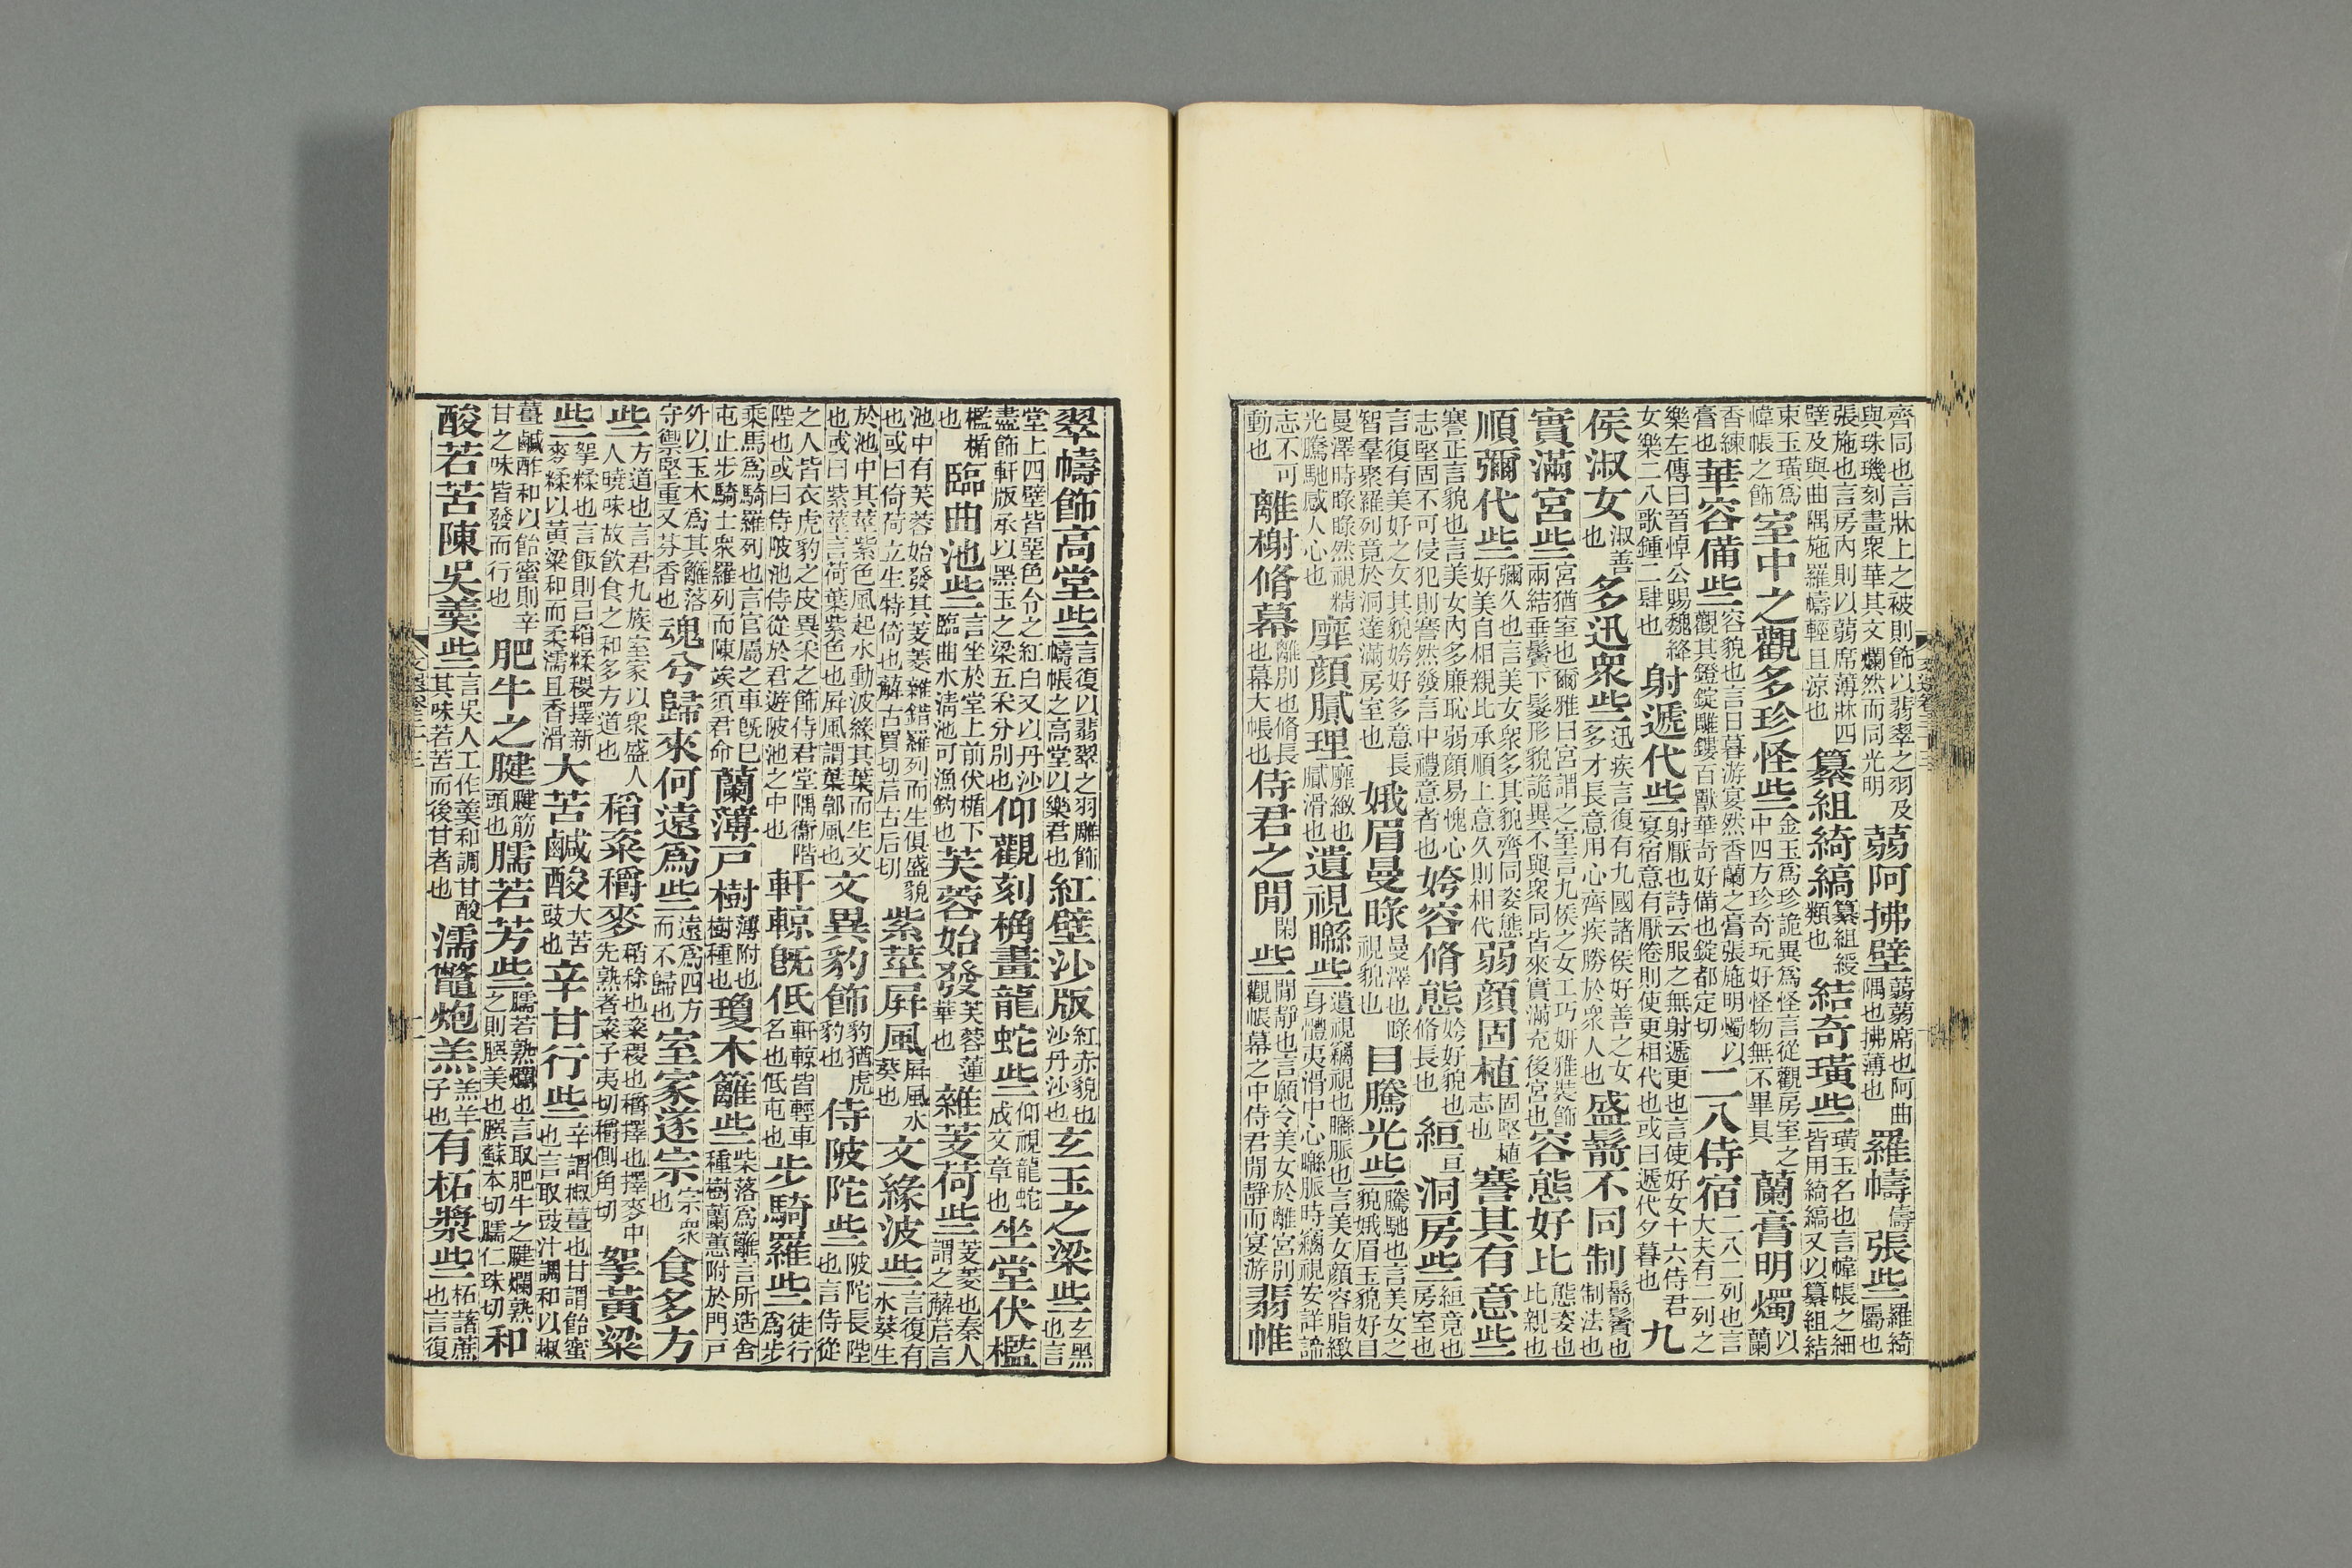 齊同也言牀上之被則飾以翡翠之羽及與珠璣刻畫衆華其文爛然而同光明蒻阿拂壁蒻蒻席也阿曲隅也拂薄也羅幬儔張些羅綺屬也
張施也言房內則以蒻席薄牀四壁及與曲隅施羅幬輕且涼也纂組綺縞纂組綬類也結奇璜些璜玉名也言幃帳之細皆用綺縞又以纂組結
束玉璜爲幃帳之飾室中之觀多珍怪些金玉爲珍詭異爲怪言從觀房室之中四方珍奇玩好怪物無不畢具蘭膏明燭以蘭
香練膏也華容備些容貌也言日暮游宴然香蘭之膏張施明燭以觀其鐙錠雕鏤百獸華奇好備也錠都定切二八侍宿二八二列也言大夫有二列之
樂左傳曰晉悼公賜魏絳女樂二八歌鍾二肆也射遞代些射厭也詩云服之無射遞更也言使好女十六侍君宴宿意有厭倦則使更相代也或曰遞代夕暮也九
侯淑女淑善也多迅衆些迅疾言復有九國諸侯好善之女多才長意用心齊疾勝於衆人也盛鬋不同制鬋鬢也制法也
實滿宮些宮猶室也爾雅曰宮謂之室言九侯之女工巧妍雅裝飾兩結垂鬢下髮形貌詭異不與衆同皆來實滿充後宮也容態好比態姿也比親也
順彌代些彌久也言美女衆多其貌齊同姿態好美自相親比承順上意久則相代弱顏固植固堅植志也謇其有意些
謇正言貌也言美女內多廉恥弱顏易愧心志堅固不可侵犯則謇然發言中禮意者也姱容脩態姱好貌也脩長也絙亘洞房些絙竟也房室也
言復有美好之女其貌姱好多意長智羣聚羅列竟於洞達滿房室也娥眉曼睩曼澤也睩視貌也目騰光些騰馳也言美女之貌娥眉玉貌好目
曼澤時睩睩然視精光騰馳感人心也靡顏膩理靡緻也膩滑也遺視矊些遺視竊視也矊脈也言美女顏容脂緻身體夷滑中心矊脈時竊視安詳諦
志不可動也離榭脩幕離別也脩長也幕大帳也侍君之閒閑些閒靜也言願令美女於離宮別觀帳幕之中侍君閒靜而宴游翡帷
翠幬飾高堂些言復以翡翠之羽雕飾幬帳之高堂以樂君也紅壁沙版紅赤貌也沙丹沙也玄玉之梁些玄黑也言
堂上四壁皆堊色令之紅白又以丹沙盡飾軒版承以黑玉之梁五采分別也仰觀刻桷畫龍蛇些仰視龍蛇成文章也坐堂伏檻
檻楯也臨曲池些言坐於堂上前伏楯下臨曲水淸池可漁釣也芙蓉始發芙蓉蓮華也雜芰荷些芰菱也秦人謂之薢茩言
池中有芙蓉始發其芰菱雜錯羅列而生俱盛貌也或曰倚荷立生特倚也薢古買切茩古后切紫莖屛風屛風水葵也文緣波些言復有水葵生
於池中其莖紫色風起水動波緣其葉而生文也或曰紫莖言荷葉紫色也屛風謂葉鄣風也文異豹飾豹猶虎豹也侍陂陀些陂陀長陛也言侍從
之人皆衣虎豹之皮異采之飾侍君堂隅衞階陛也或曰侍陂池侍從於君遊陂池之中也軒輬旣低軒輬皆輕車名也低屯也步騎羅些徒行爲步
乘馬爲騎羅列也言官屬之車旣巳屯止步騎士衆羅列而陳竢須君命蘭薄戸樹薄附也樹種也瓊木籬些柴落爲籬言所造舍種樹蘭蕙附於門戸
外以玉木爲其籬落守禦堅重又芬香也魂兮歸來何遠爲些遠爲四方而不歸也室家遂宗宗衆也食多方
些方道也言君九族室家以衆盛人人曉味故飮食之和多方道也稻粢穱麥稻稌也粢稷也穱擇也擇麥中先熟者粢子夷切穱側角切挐黃粱
些挐糅也言飯則㠯稻糅稷擇新麥糅以黃粱和而柔濡且香滑大苦鹹酸大苦豉也辛甘行些辛謂椒薑也甘謂飴蜜也言取豉汁調和以椒
薑鹹酢和以飴蜜則辛甘之味皆發而行也肥牛之腱腱筋頭也臑若芳些臑若熟爛也言取肥牛之腱爛熟之則腴美也腴蘇本切臑仁珠切和
酸若苦陳吳羹些言吳人工作羹和調甘酸其味若苦而後甘者也濡鼈炮羔羔羊子也有柘漿些柘藷蔗也言復